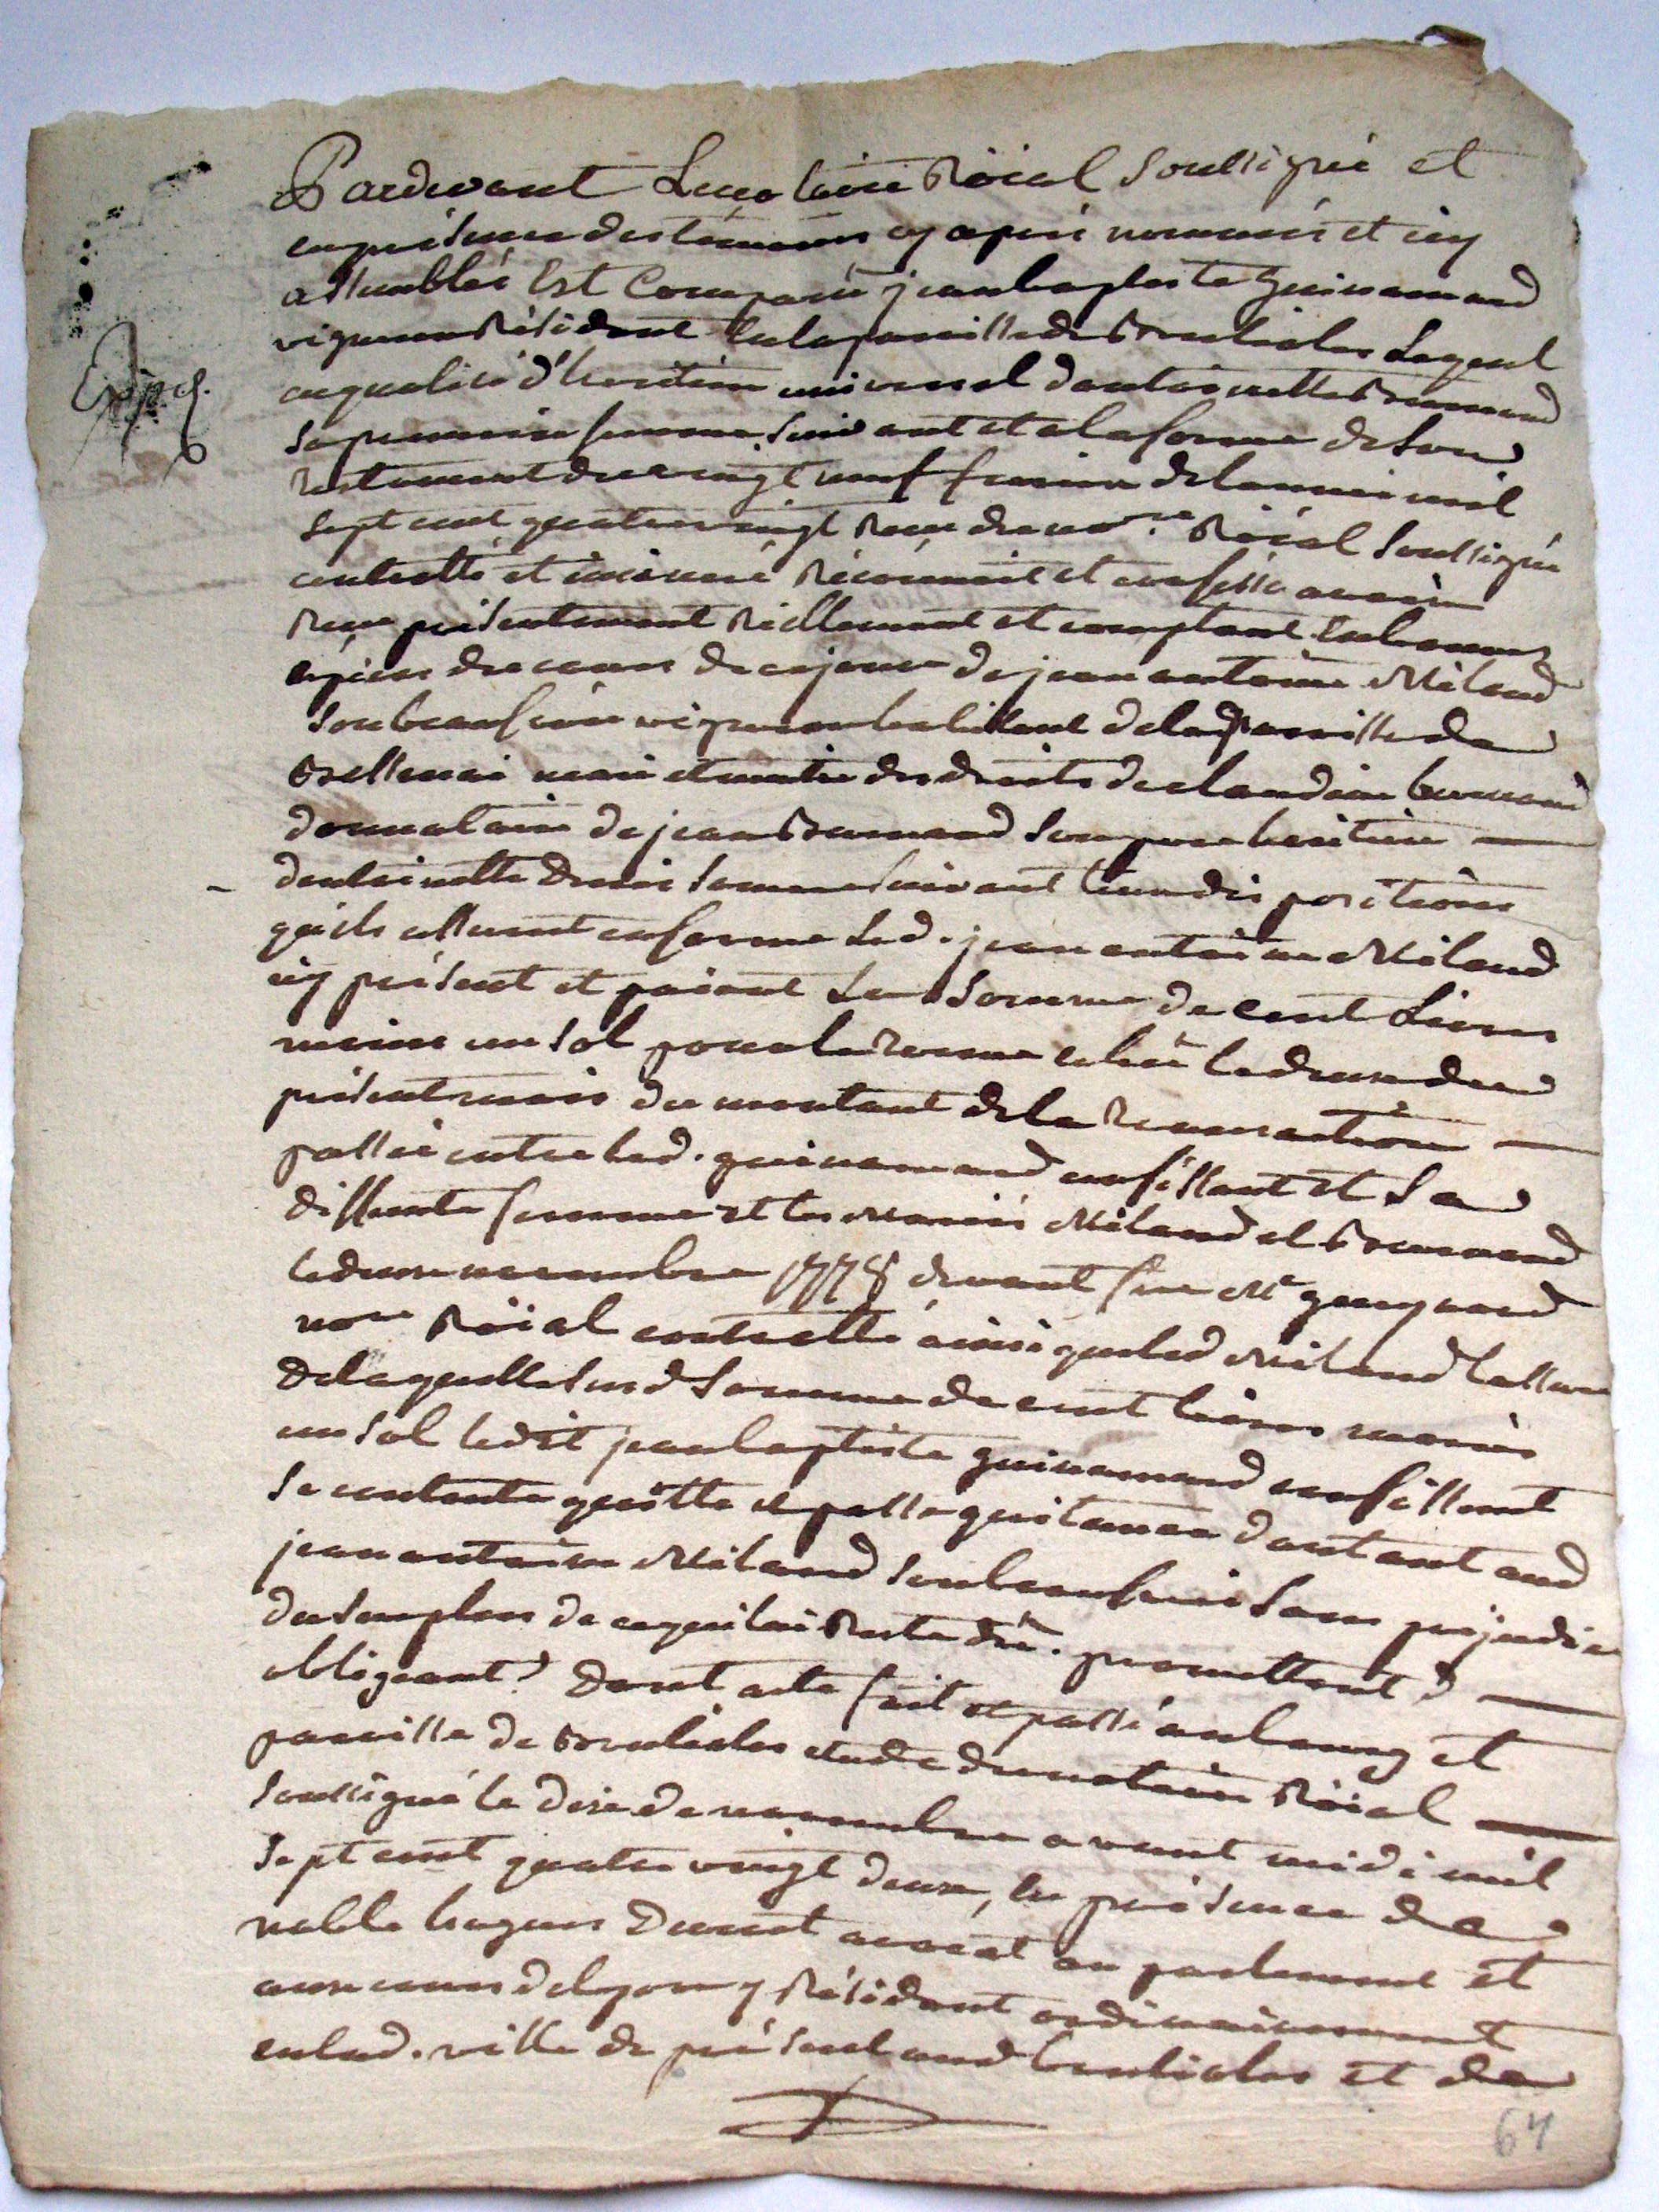 Pardevant Le notaire Roïal soussigné et
en présence des témoins cy après nommés et icy
assemblés Est Comparu jean baptiste Guinamand
vigneron Résidant En la paroisse de Brulioles Lequel
en qualité d'héritier universel d'antoinette Brunand
sa premiere femme suivant et a la forme de son
testament du vingt neuf fevrier de l'année mil
sept cent quatre vingt Reçu du no.re Roïal soussigné
controllé et insinué Reconnoit et confesse avoir
Reçu présentement Réellement et comptant En bonnes
espèces du cours de ce jour de jean antoine Miland
son beaufrère vigneron habitant de la paroisse de
Bessenai mari et maitre des droits de claudine brunand
donnataire de jean Brunand son pere heritier
d'antoinette suivant leurs dispositions
qu'ils assurent en forme Led. jean antoine Miland
icy présent et païant La Somme de cent Livres
moins un sol pour le terme echû le deux du
présent mois du montant de la transaction
passée entre led. guinamand confessant et sa
diffunte femme et les mariés Miland et Brunand
le deux novembre 1778 devant feu Me guygnand
nore Roïal controllé ainsi que led Miland l'assure
De laquelle susd Somme de cent livres moins
un sol ledit jean baptiste guinamand confessant
se contente quitte et passe quitance d'autant aud
jean antoine Miland son beaufrere sans préjudice
du surplus de ce qui lui Reste dû. promettant &
obligeant & Dont acte fait et passé au bourg et
paroisse de Brulioles etude du notaire Roïal
soussigné le dix de novembre avant midi mil
sept cent quatre vingt deux, En présence de
noble hugues Durret avocat en parlement et
aux cours de lyon y Résidant ordinairement
en lad. ville de présent aud brulioles et de
64